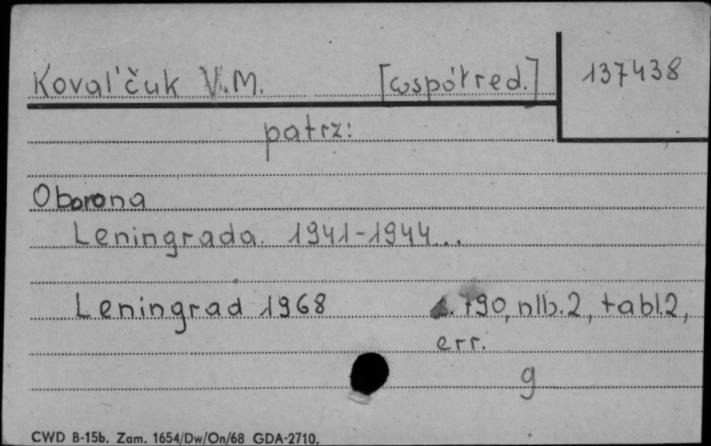 Koval'čuk V.M. [współred.] 137438
patrz:
Oborona
Leningrada. 1941-1944...
Leningrad 1968 s. 790, nlb.2, tabl.2,
err.
g
CWD B-15b. Zam. 1654/Dw/On/68 GDA-2710.